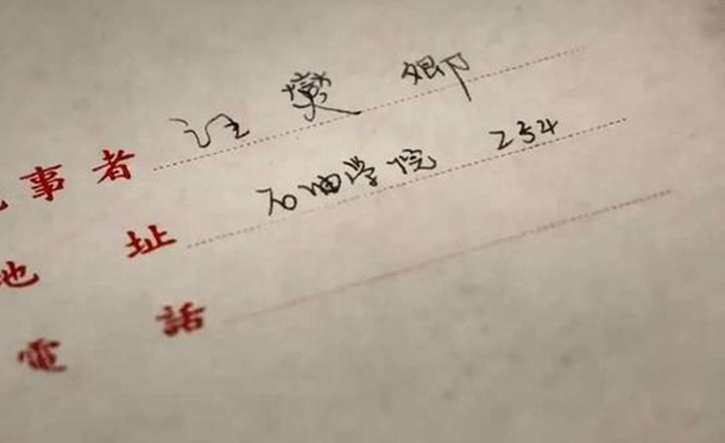 事者 汪 卿
地址 石油学院 234
電話